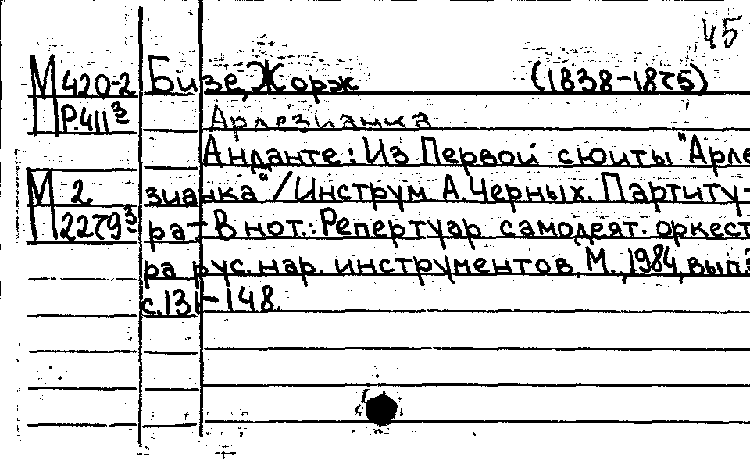 45
М 420-2 Бизе, Жорж (1838-1875)
Р.411³ Арлезианка
Анданте: Из Первой сюиты "Арле
М 2 зианка" / Инструм А. Черных. Партиту-
2279³ ра - В нот.: Репертуар самодеят. оркест
ра рус. нар. инструментов. М., 1984, вып.
с. 131-148.